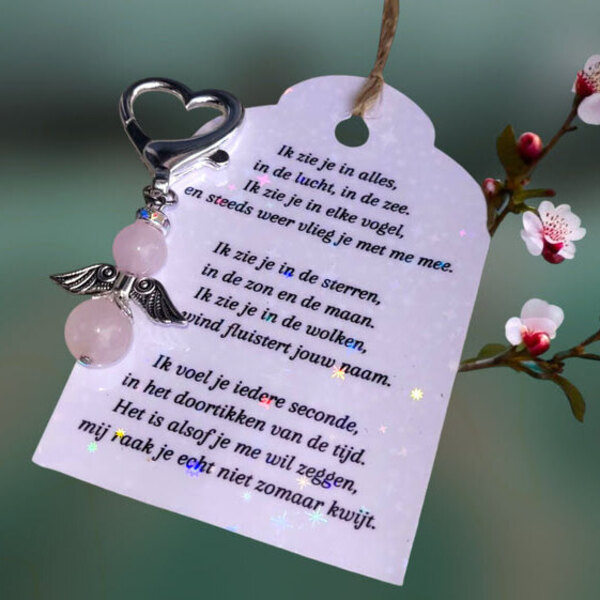 Ik zie je in alles,
in de lucht, in de zee.
Ik zie je in elke vogel,
en steeds weer vlieg je met me mee.
Ik zie je in de sterren,
in de zon en de maan.
Ik zie je in de wolken,
wind fluistert jouw naam.
Ik voel je iedere seconde,
in het doortikken van de tijd.
Het is alsof je me wil zeggen,
mij raak je echt niet zomaar kwijt.